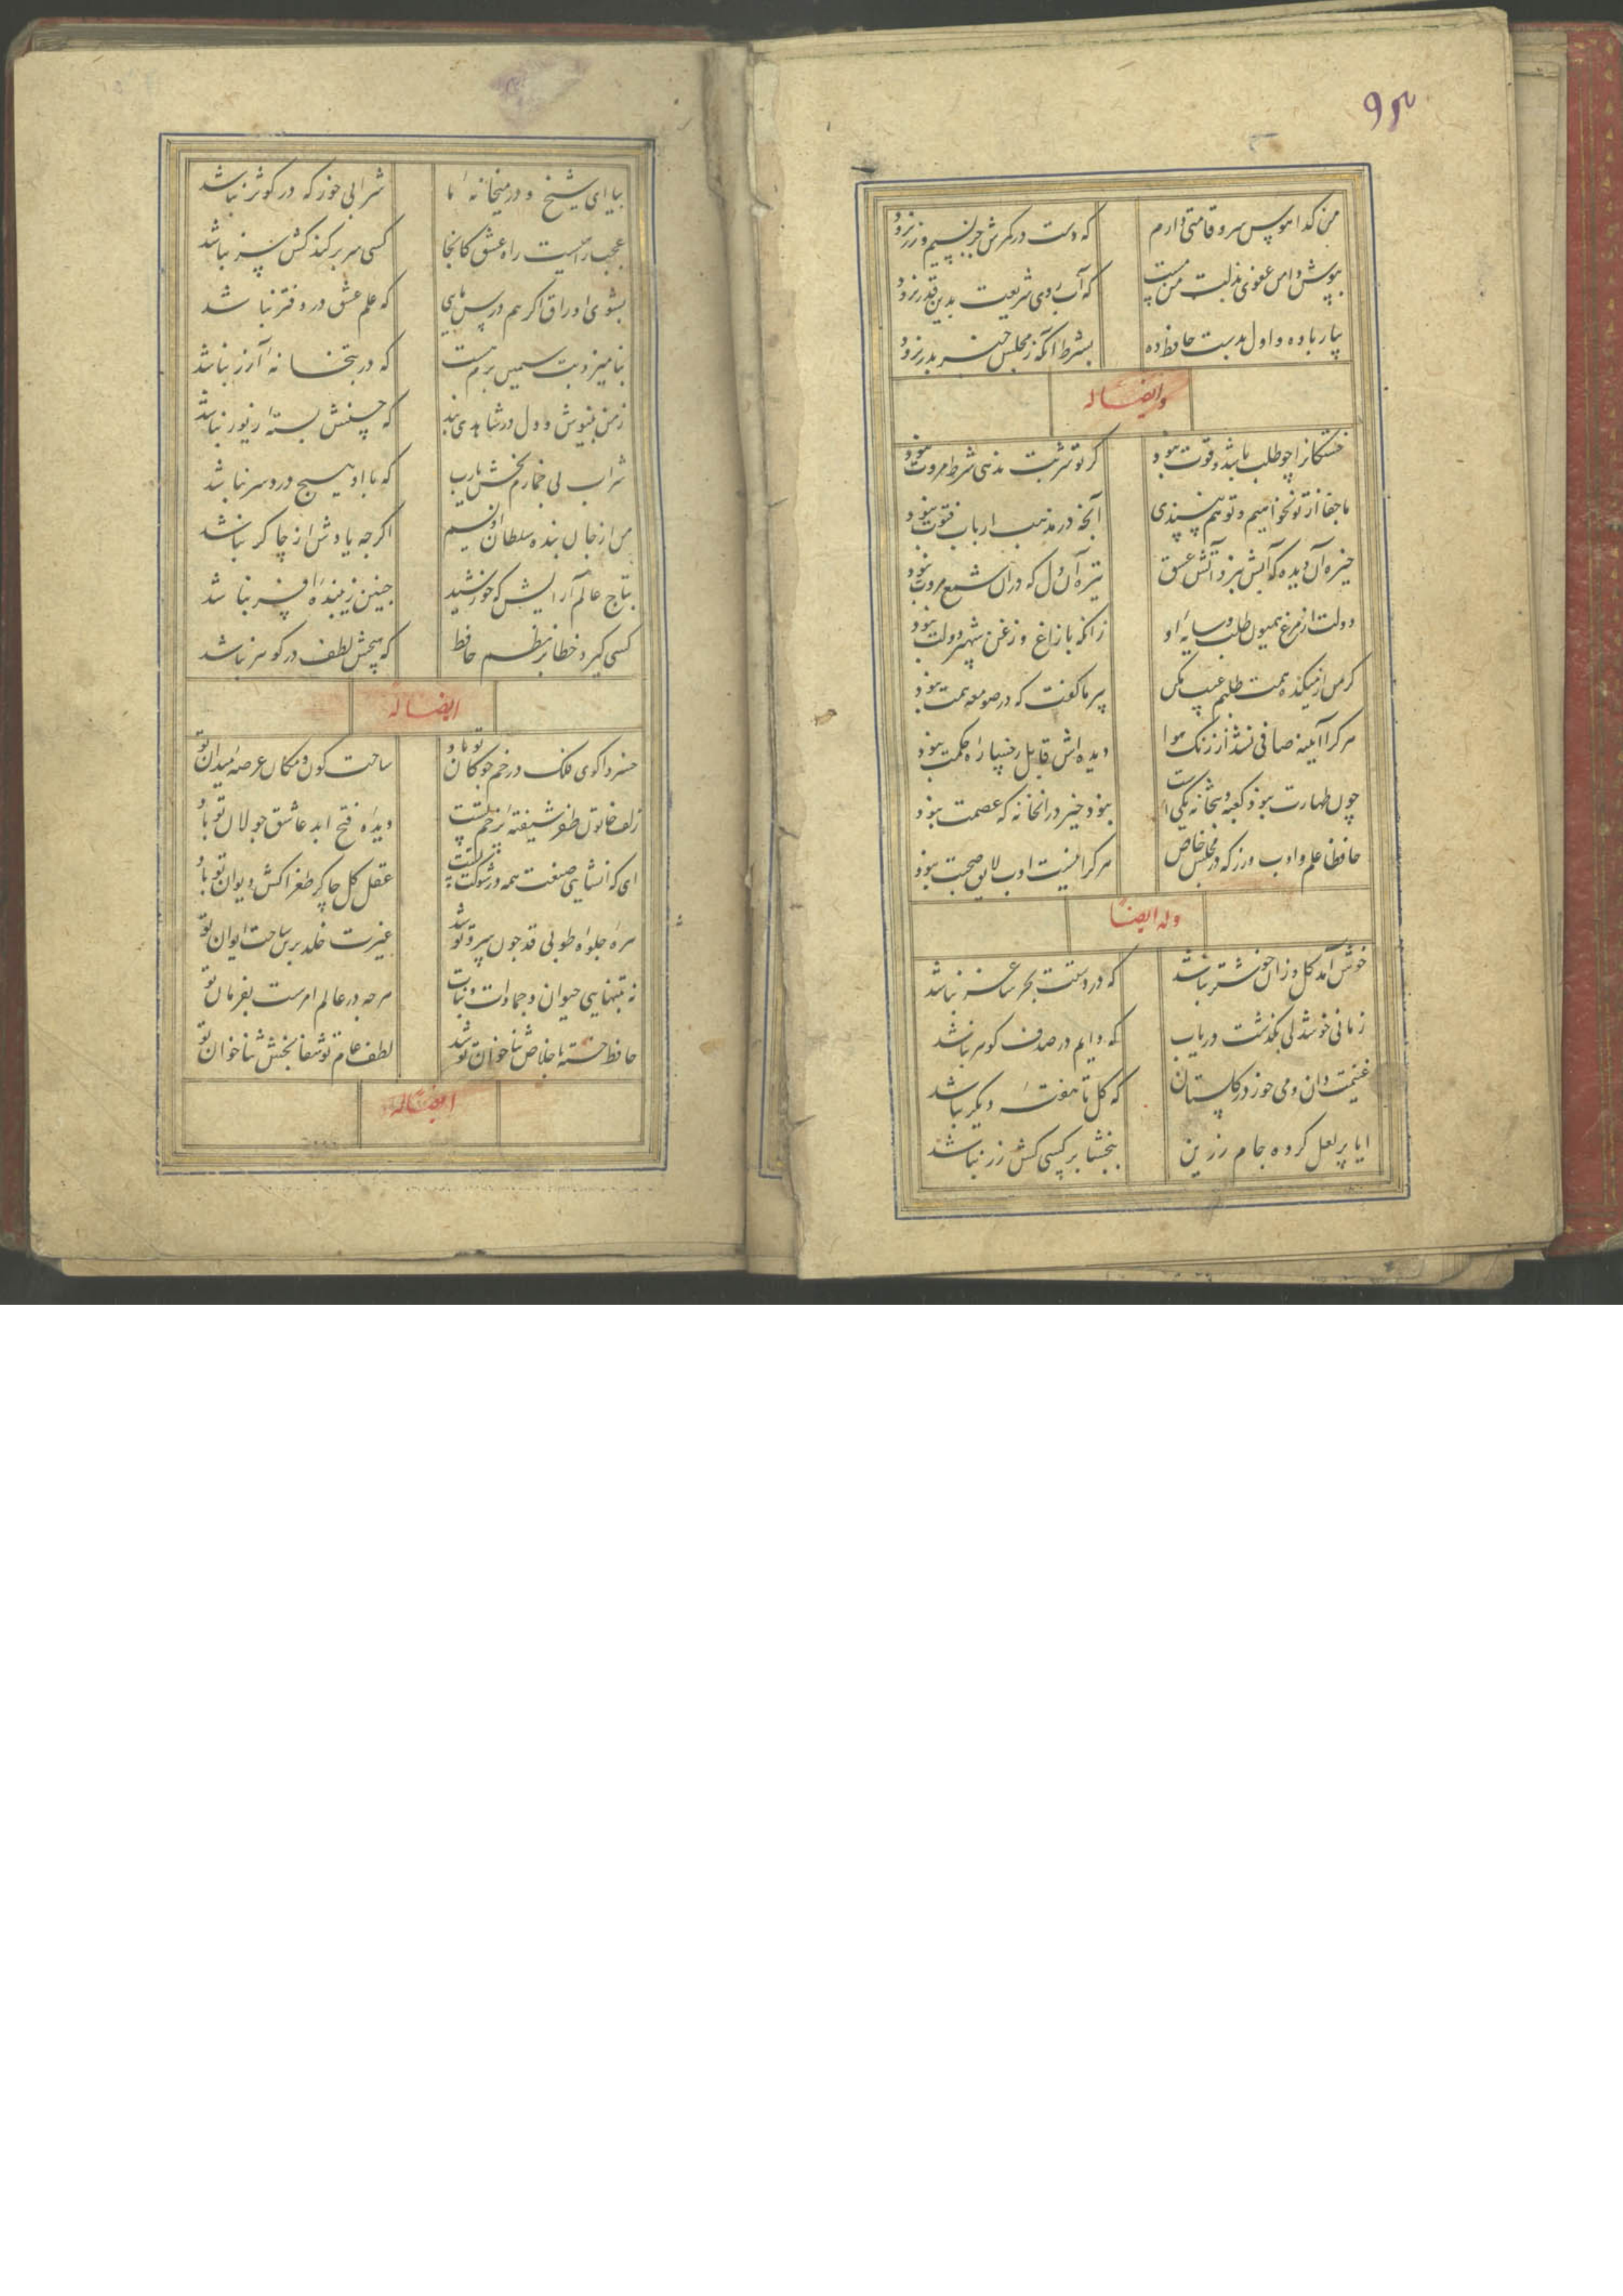 ۹۳
من گدا هوس سرو قامتی دارم
که دست در کمرش جز بسیم و زر نرود
بپوش دامن عفوی بذلت من مست
که آب روی شریعت بدین قدر نرود
بیار باده و اول بدست حافظ ده
بشرط آنکه ز مجلس خبر بدر نرود
وایضاً له
خستگانرا چو طلب باشد و قوت نبود
کر تو شربت ندهی شرط مروت نبود
ما جفا از تو نخواهیم و تو هم نپسندی
آنچه در مذهب ارباب فتوت نبود
خیره آن دیده که آبش نبرد آتش عشق
تیره آن دل که در آن شمع مروت نبود
دولت از مرغ همیون طلب و سایهٔ او
زانکه با زاغ و زغن شهپر دولت نبود
کر من از میکده همت طلبم عیب مکن
پیر ما گفت که در صومعه همت نبود
هرکرا آیینه صافی نشد از زنک هوا
دیده اش قابل رخسارهٔ حکمت نبود
چون طهارت نبود کعبه و بتخانه یکی است
نبود خیر در آنخانه که عصمت نبود
حافظا علم و ادب ورز که در مجلس خاص
هرکرا نیست ادب لایق صحبت نبود
وله ایضاً
خوش آمد کل وزان خوشتر نباشد
که در دستت بجز ساغر نباشد
زمانی خوشدلی بگذشت دریاب
که دایم در صدف کوهر نباشد
غنیمت دان و می خور در کلستان
که کل تا هفتهٔ دیکر نباشد
ایا پر لعل کرده جام زرین
ببخشا بر کسی کش زر نباشد
بیا ای شیخ و در میخانهٔ ما
شرابی خور که در کوثر نباشد
عجب راهیست راه عشق کانجا
کسی سر بر کند کش سر نباشد
بشوی اوراق اکر هم درس مایی
که علم عشق در دفتر نباشد
بنامیزد بت سیمین برم هست
که در بتخانهٔ آزر نباشد
ز من بنیوش و دل در شاهدی بند
که حسنش بستهٔ زیور نباشد
شراب بی خمارم بخش یا رب
که با او هیچ درد سر نباشد
من از جان بنده سلطان اویسم
اکرچه یادش از چاکر نباشد
بتاج عالم آرایش که خورشید
چنین زیبندهٔ افسر نباشد
کسی کیرد خطا بر نظم حافظ
که هیچش لطف در کوهر نباشد
ایضاً له
خسروا کوی فلک در خم چوکان تو باد
ساحت کون و مکان عرصهٔ میدان تو باد
زلف خاتون ظفر شیفتهٔ پرچم تست
دیدهٔ فتح ابد عاشق جولان تو باد
ای که انشای صفت همه در شوکت تست
عقل کل چاکر طغراکش دیوان تو باد
طوبی قد چون سرو تو شد
غیرت خلد برین ساحت ایوان تو
نه بتنهایی حیوان و جمادات و نبات
هرچه در عالم امرست بفرمان تو
حافظ خسته باخلاص ثناخوان تو شد
لطف عام تو شفا بخش ثناخوان تو
ایضاً له